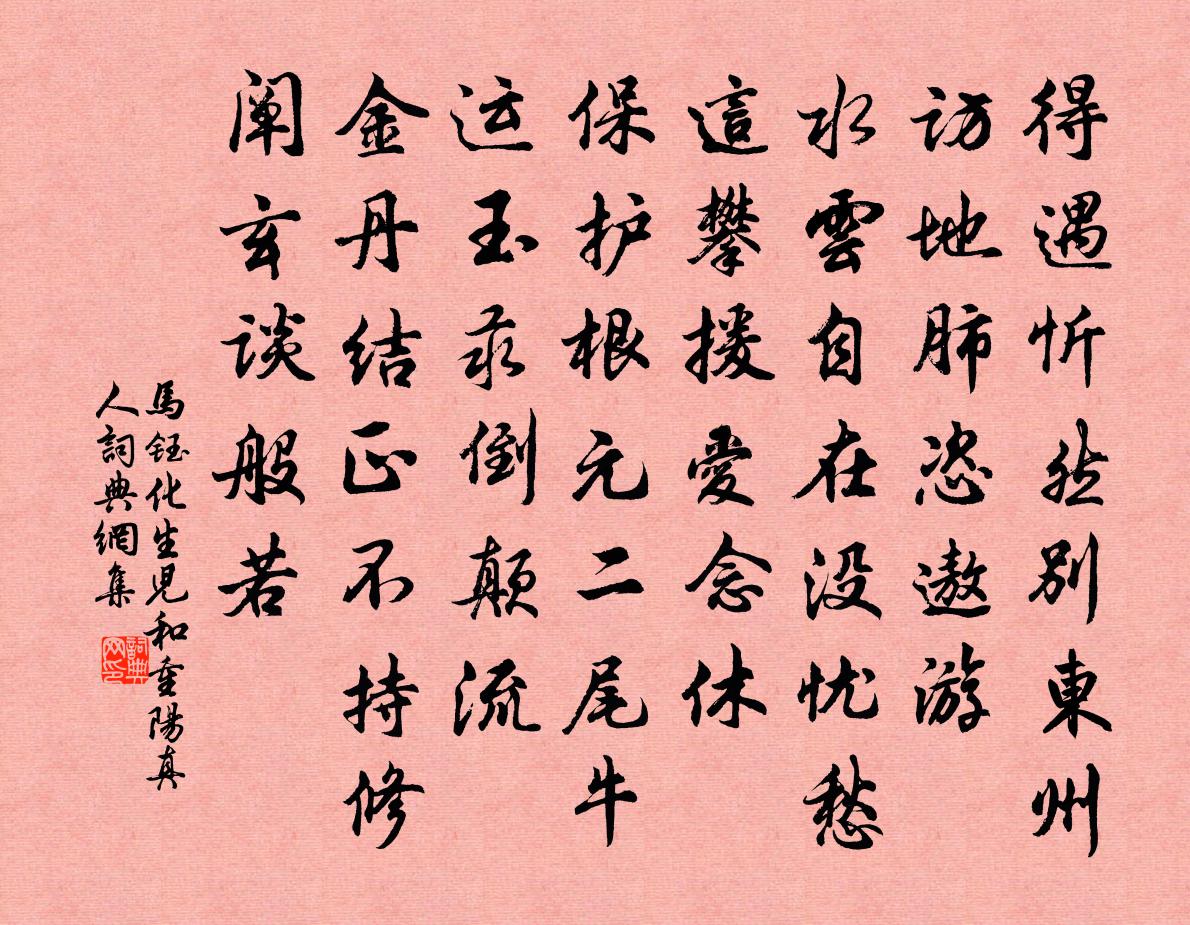 得遇忻然别東州
访地肺恣遨游
水雲自在没忧愁
這攀援愛念休
保护根元二尾牛
运玉汞倒颠流
金丹结正不持修
阐玄谈般若
馬鈺化生児和重陽真
人詞典網集
詞典网印